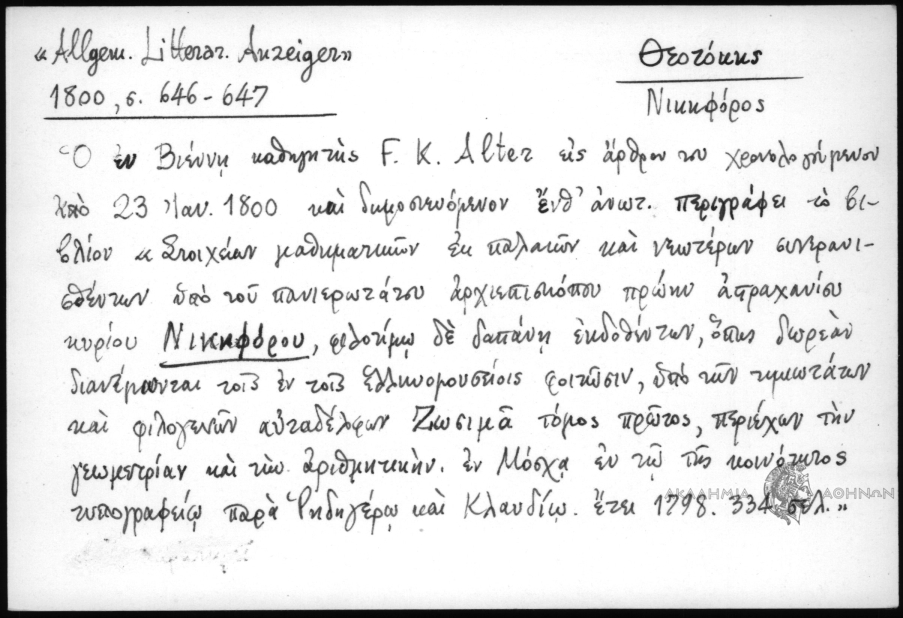 «Allgem. Litterar. Anzeiger»
1800, σ. 646-647
Θεοτόκης
Νικηφόρος
Ὁ ἐν Βιέννῃ καθηγητὴς F. K. Alter εἰς ἄρθρον του χρονολογούμενον
ἀπὸ 23 Ἰαν. 1800 καὶ δημοσιευόμενον ἔνθ' ἀνωτ. περιγράφει τὸ βι-
βλίον «Στοιχείων μαθηματικῶν ἐκ παλαιῶν καὶ νεωτέρων συνερανι-
σθέντων ὑπὸ τοῦ πανιερωτάτου ἀρχιεπισκόπου πρώην ἀστραχανίου
κυρίου Νικηφόρου, φιλοτίμῳ δὲ δαπάνῃ ἐκδοθέντων, ὅπως δωρεὰν
διανέμωνται τοῖς ἐν τοῖς ἑλληνομουσείοις φοιτῶσιν, ὑπὸ τῶν τιμιωτάτων
καὶ φιλογενῶν αὐταδέλφων Ζωσιμᾶ τόμος πρῶτος, περιέχων τὴν
γεωμετρίαν καὶ τὴν ἀριθμητικήν. ἐν Μόσχᾳ ἐν τῷ τῆς κοινότητος
τυπογραφείῳ παρὰ Ῥιδηγέρῳ καὶ Κλαυδίῳ. ἔτει 1798. 334 σελ.»
ΑΚΑΔΗΜΙΑ ΑΘΗΝΩΝ